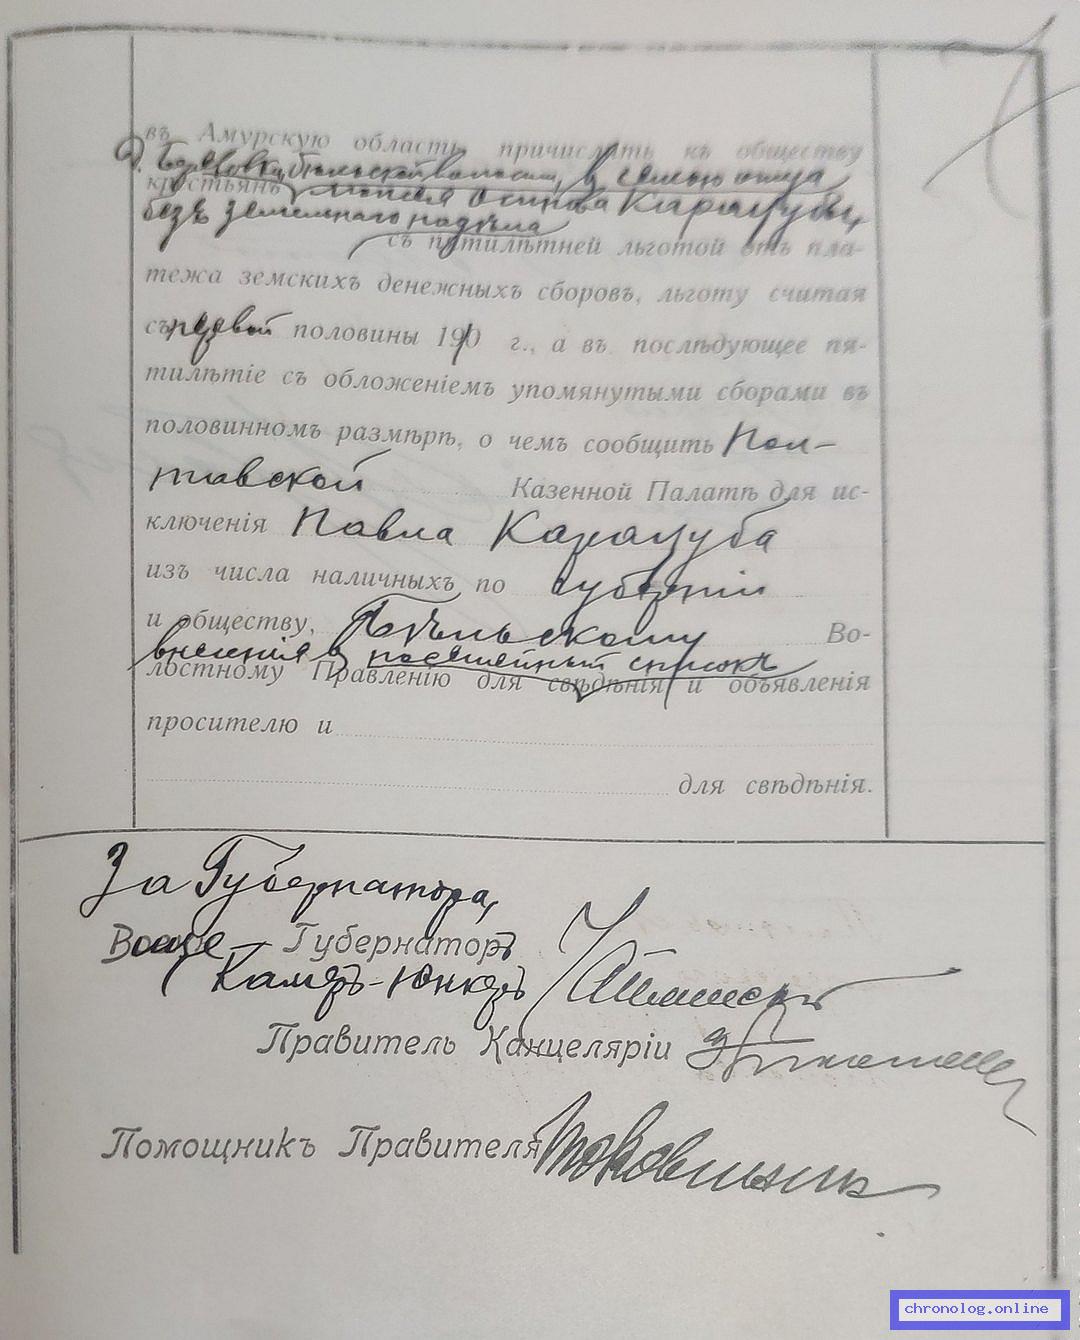 въ Амурскую область причислить къ обществу
д. Березовки, Бѣльской волости, въ семью отца
крестьянъ Моисея Осипова Карапуза,
безъ земельнаго надѣла
съ пятилѣтней льготой отъ пла-
тежа земскихъ денежныхъ сборовъ, льготу считая
съ первой половины 1910 г., а въ послѣдующее пя-
тилѣтіе съ обложеніемъ упомянутыми сборами въ
половинномъ размѣрѣ, о чемъ сообщить Пол-
тавской Казенной Палатѣ для ис-
ключенія Павла Карапуза
изъ числа наличныхъ по губерніи
и обществу, Бѣльскому Во-
внесенія въ посемейный списокъ
лостному Правленію для свѣдѣнія и объявленія
просителю и
для свѣдѣнія.
За Губернатора,
Вице-Губернаторъ
Камеръ-Юнкеръ
Правитель Канцеляріи
Помощникъ Правителя
chronolog.online